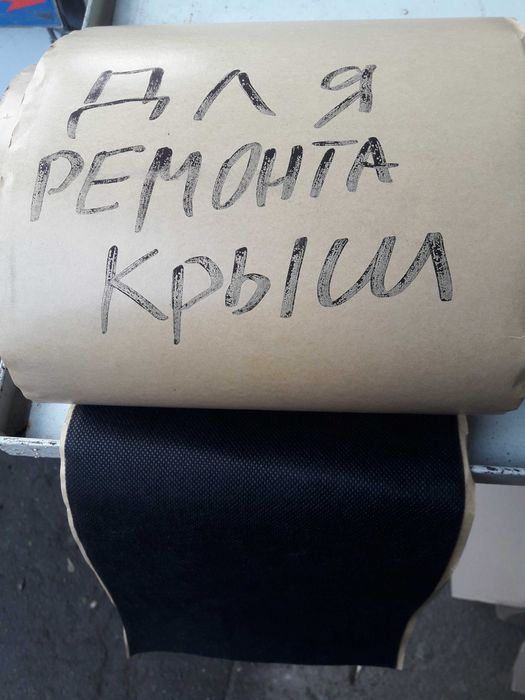 ДЛЯ
РЕМОНТА
КРЫШ